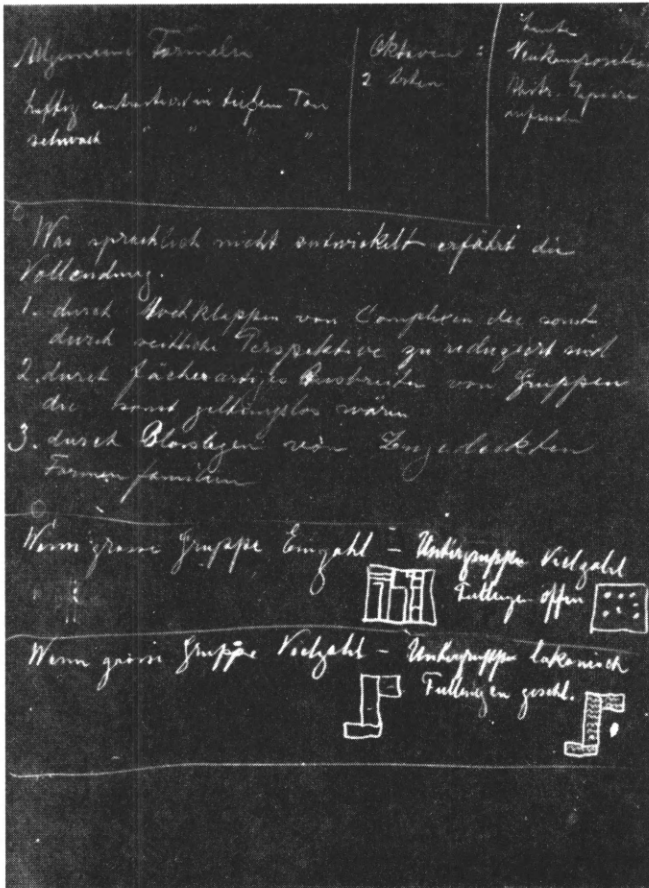 Allgemeine Formeln
heftig contrastiert in tiefem Ton
schwach " " " "
Oktaven :
2 Arten
heute
Neukomposition
Was sprachlich nicht entwickelt erfährt die
Vollendung.
1. durch Hochklappen von Complexen die sonst
durch seitliche Perspektive zu reduziert sind
2. durch fächerartiges Ausbreiten von Gruppen
die sonst geltungslos wären
3. durch Blosslegen von Zugedeckten
Formenfamilien
Wenn grosse Gruppe Einzahl – Untergruppen Vielzahl
Füllungen offen
Wenn grosse Gruppe Vielzahl – Untergruppe lakonisch
Füllungen geschl.